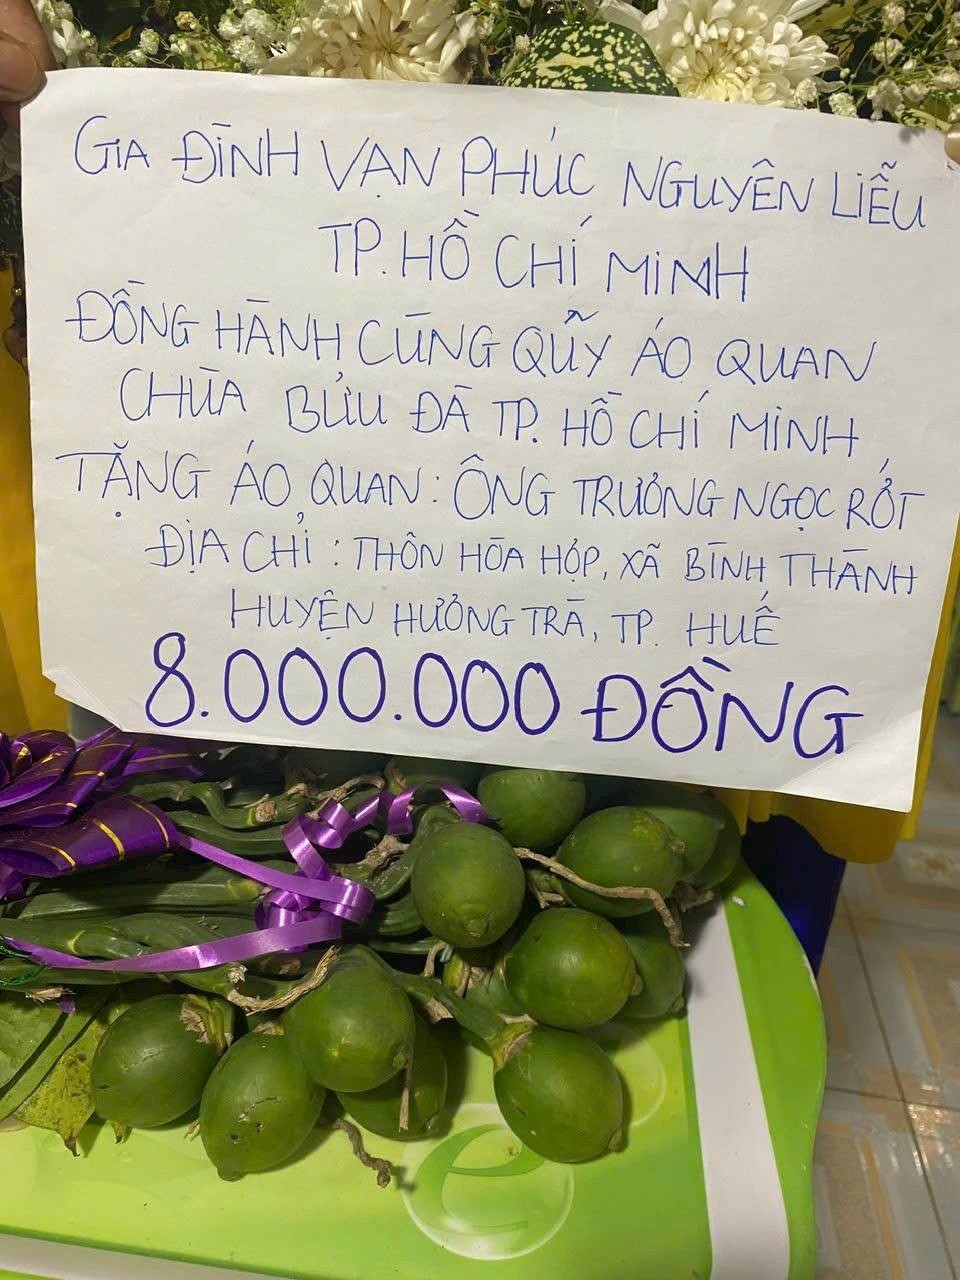 GIA ĐÌNH VẠN PHÚC NGUYÊN LIỄU
TP. HỒ CHÍ MINH
ĐỒNG HÀNH CÙNG QUỸ ÁO QUAN
CHÙA BỬU ĐÀ TP. HỒ CHÍ MINH
TẶNG ÁO QUAN: ÔNG TRƯƠNG NGỌC RỚT
ĐỊA CHỈ: THÔN HÒA HỢP, XÃ BÌNH THÀNH
HUYỆN HƯƠNG TRÀ, TP. HUẾ
8.000.000 ĐỒNG
e